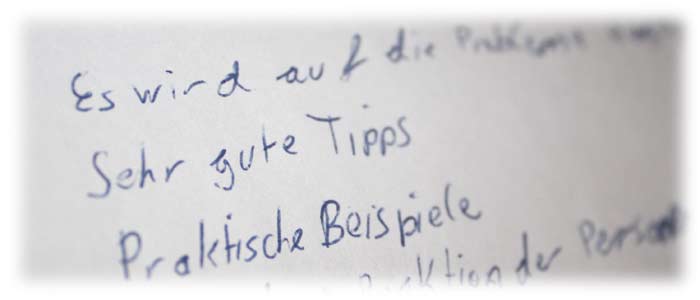 Es wird auf die Probleme
Sehr gute Tipps
Praktische Beispiele
der Person